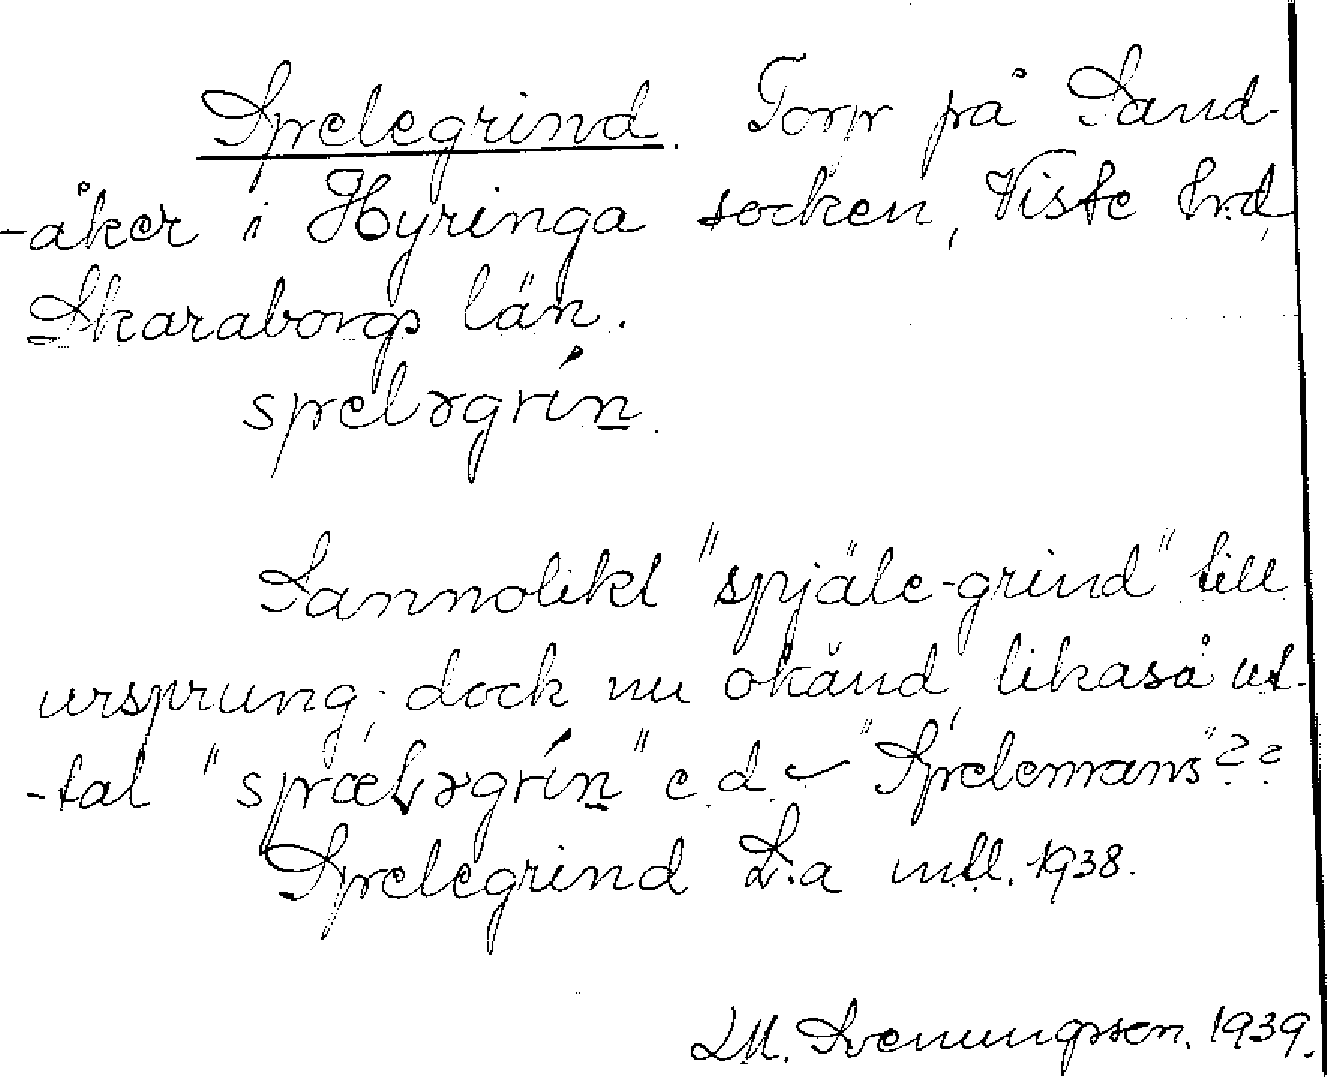 Spelegrind. Torp på Sand-
-åker i Hyringa socken, Viste hd,
Skaraborgs län.
spelǝgrín.
Sannolikt "spjäle-grind" till
ursprung; dock nu okänd, likaså ut-
-tal "grín" e.d. "Spelemans"??
Spelegrind L:a mtl. 1938.
LM. Svenungsson. 1939.